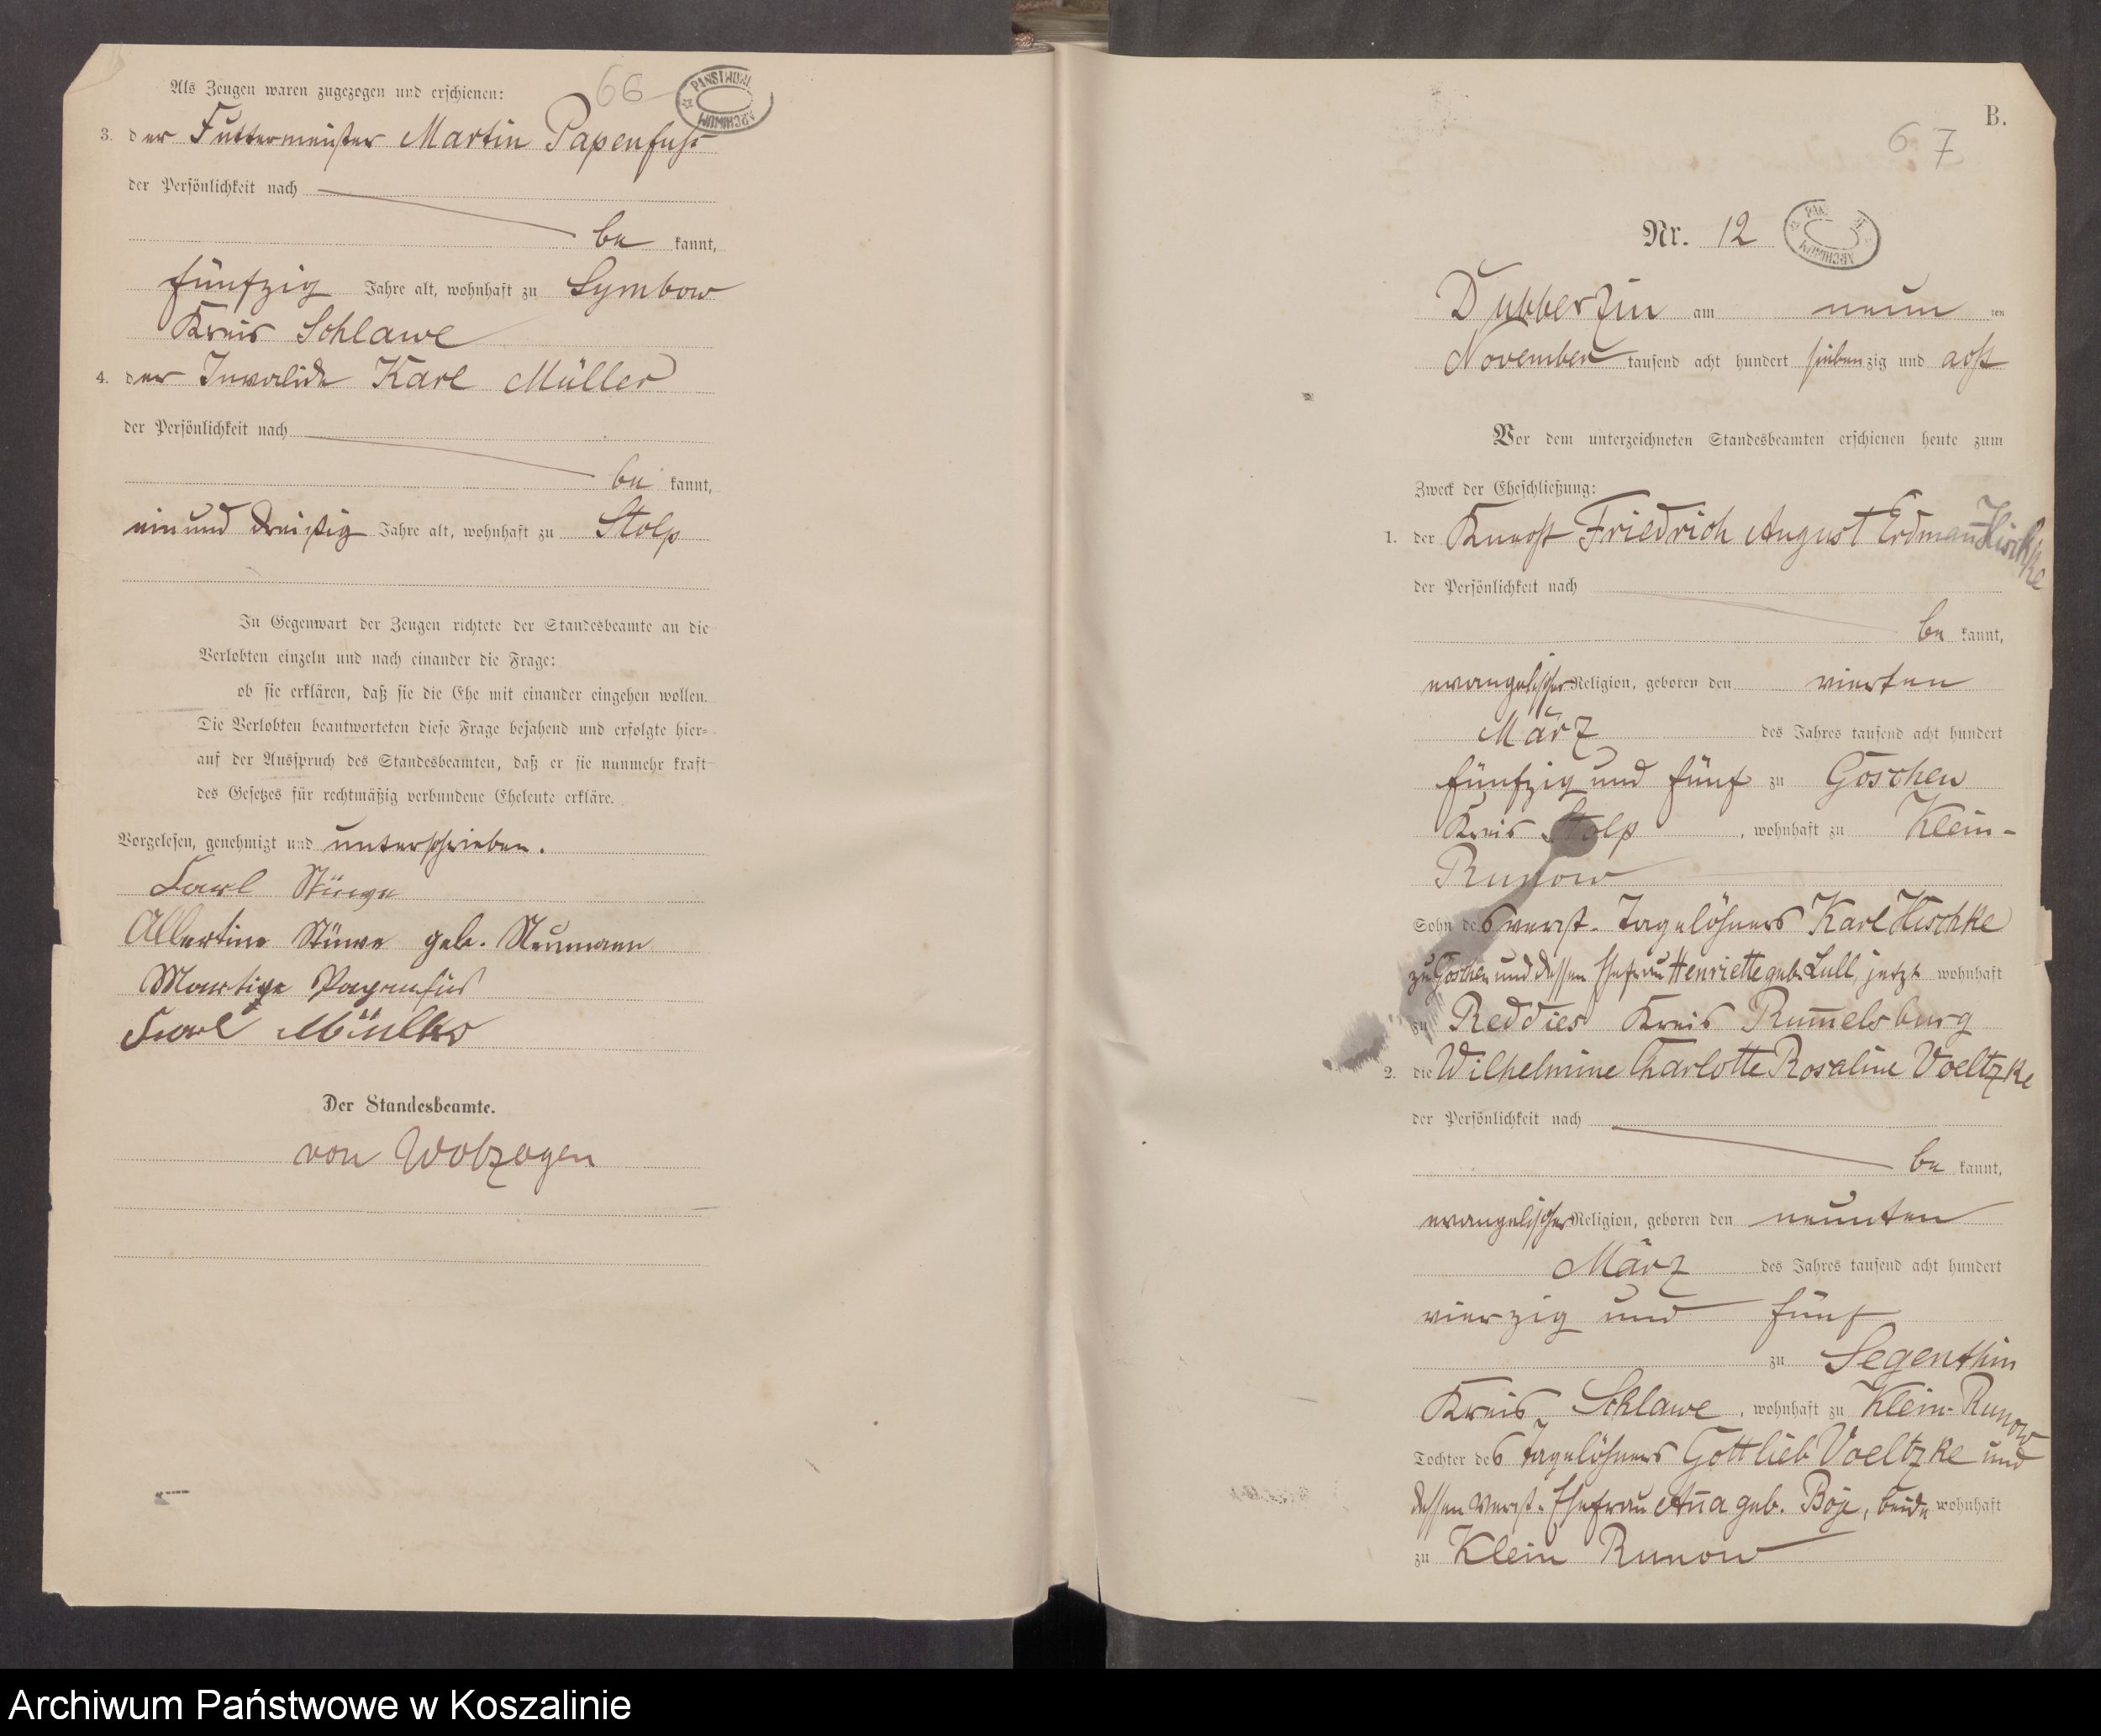 66
PAŃSTWOW. ARCHIWUM
Als Zeugen waren zugezogen und erschienen:
3. der Futtermeister Martin Papenfuß
der Persönlichkeit nach
be kannt,
fünfzig Jahre alt, wohnhaft zu Symbow
Kreis Schlawe
4. der Invalide Karl Müller
der Persönlichkeit nach
be kannt,
ein und dreißig Jahre alt, wohnhaft zu Stolp
In Gegenwart der Zeugen richtete der Standesbeamte an die
Verlobten einzeln und nach einander die Frage:
ob sie erklären, daß sie die Ehe mit einander eingehen wollen.
Die Verlobten beantworteten diese Frage bejahend und erfolgte hier-
auf der Ausspruch des Standesbeamten, daß er sie nunmehr kraft
des Gesetzes für rechtmäßig verbundene Eheleute erkläre.
Vorgelesen, genehmigt und unterschrieben.
Carl Stüwe
Albertine Stüwe geb. Neumann
Martin Papenfus
Karl Müller
Der Standesbeamte.
von Wolzogen
B.
67
Nr. 12
ARCHIWUM
Dubberzin am neun ten
November tausend acht hundert siebenzig und acht
Vor dem unterzeichneten Standesbeamten erschienen heute zum
Zweck der Eheschließung:
1. der Knecht Friedrich August Erdmann Hischke
der Persönlichkeit nach
be kannt,
evangelischer Religion, geboren den vierten
März des Jahres tausend acht hundert
fünfzig und fünf zu Goschen
Kreis Stolp, wohnhaft zu Klein-
Runow
Sohn des verst. Tagelöhners Karl Hischke
zu Goschen und dessen Ehefrau Henriette geb. Lull, jetzt wohnhaft
zu Reddies Kreis Rum̅elsburg
2. die Wilhelmine Charlotte Rosaline Voeltzke
der Persönlichkeit nach
be kannt,
evangelischer Religion, geboren den neunten
März des Jahres tausend acht hundert
vierzig und fünf
zu Segenthin
Kreis Schlawe, wohnhaft zu Klein-Runow
Tochter des Tagelöhners Gottlieb Voeltzke und
dessen verst. Ehefrau An̅a geb. Böje, beide wohnhaft
zu Klein Runow
Archiwum Państwowe w Koszalinie